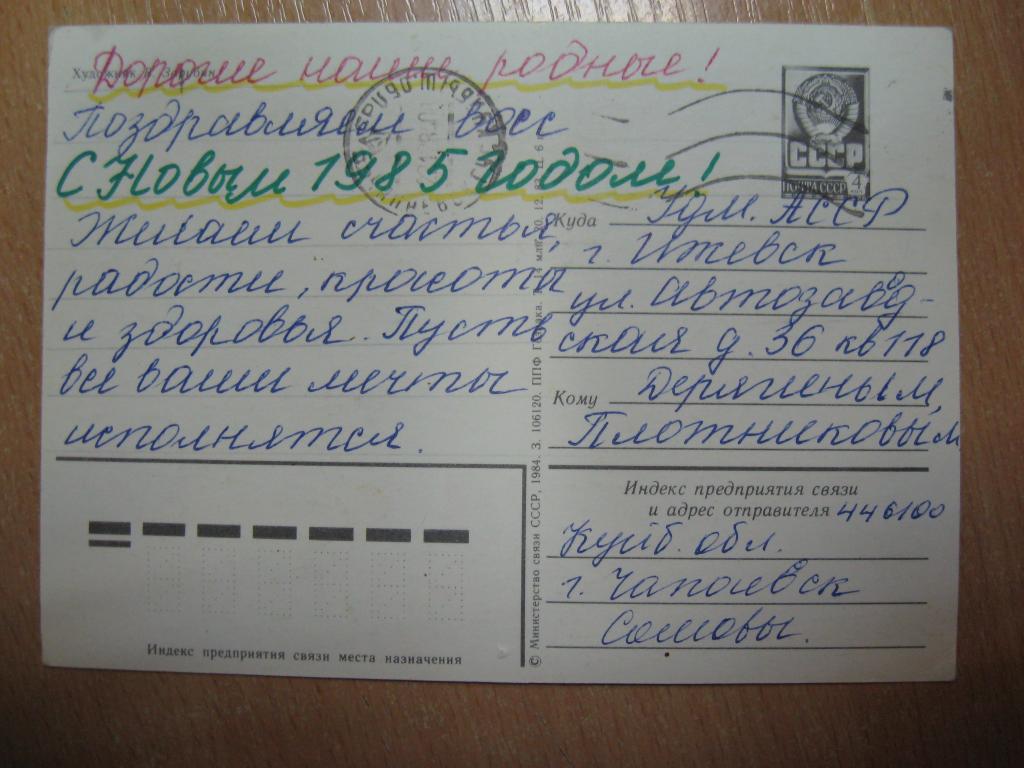 Дорогие наши родные!
Художник
Поздравляем вас
С Новым 1985 годом!
Желаем счастья,
радости, красоты
и здоровья. Пусть
все ваши мечты
исполнятся.
СССР
ПОЧТА СССР 4
Куда Удм. АССР
г. Ижевск
ул. Автозавод-
ская д. 36 кв 118
Кому Дерягиным,
Плотниковым
Индекс предприятия связи
и адрес отправителя 446100
Куйб. обл.
г. Чапаевск
Сомовы.
© Министерство связи СССР, 1984. З. 106120. ППФ Гознака.
Индекс предприятия связи места назначения